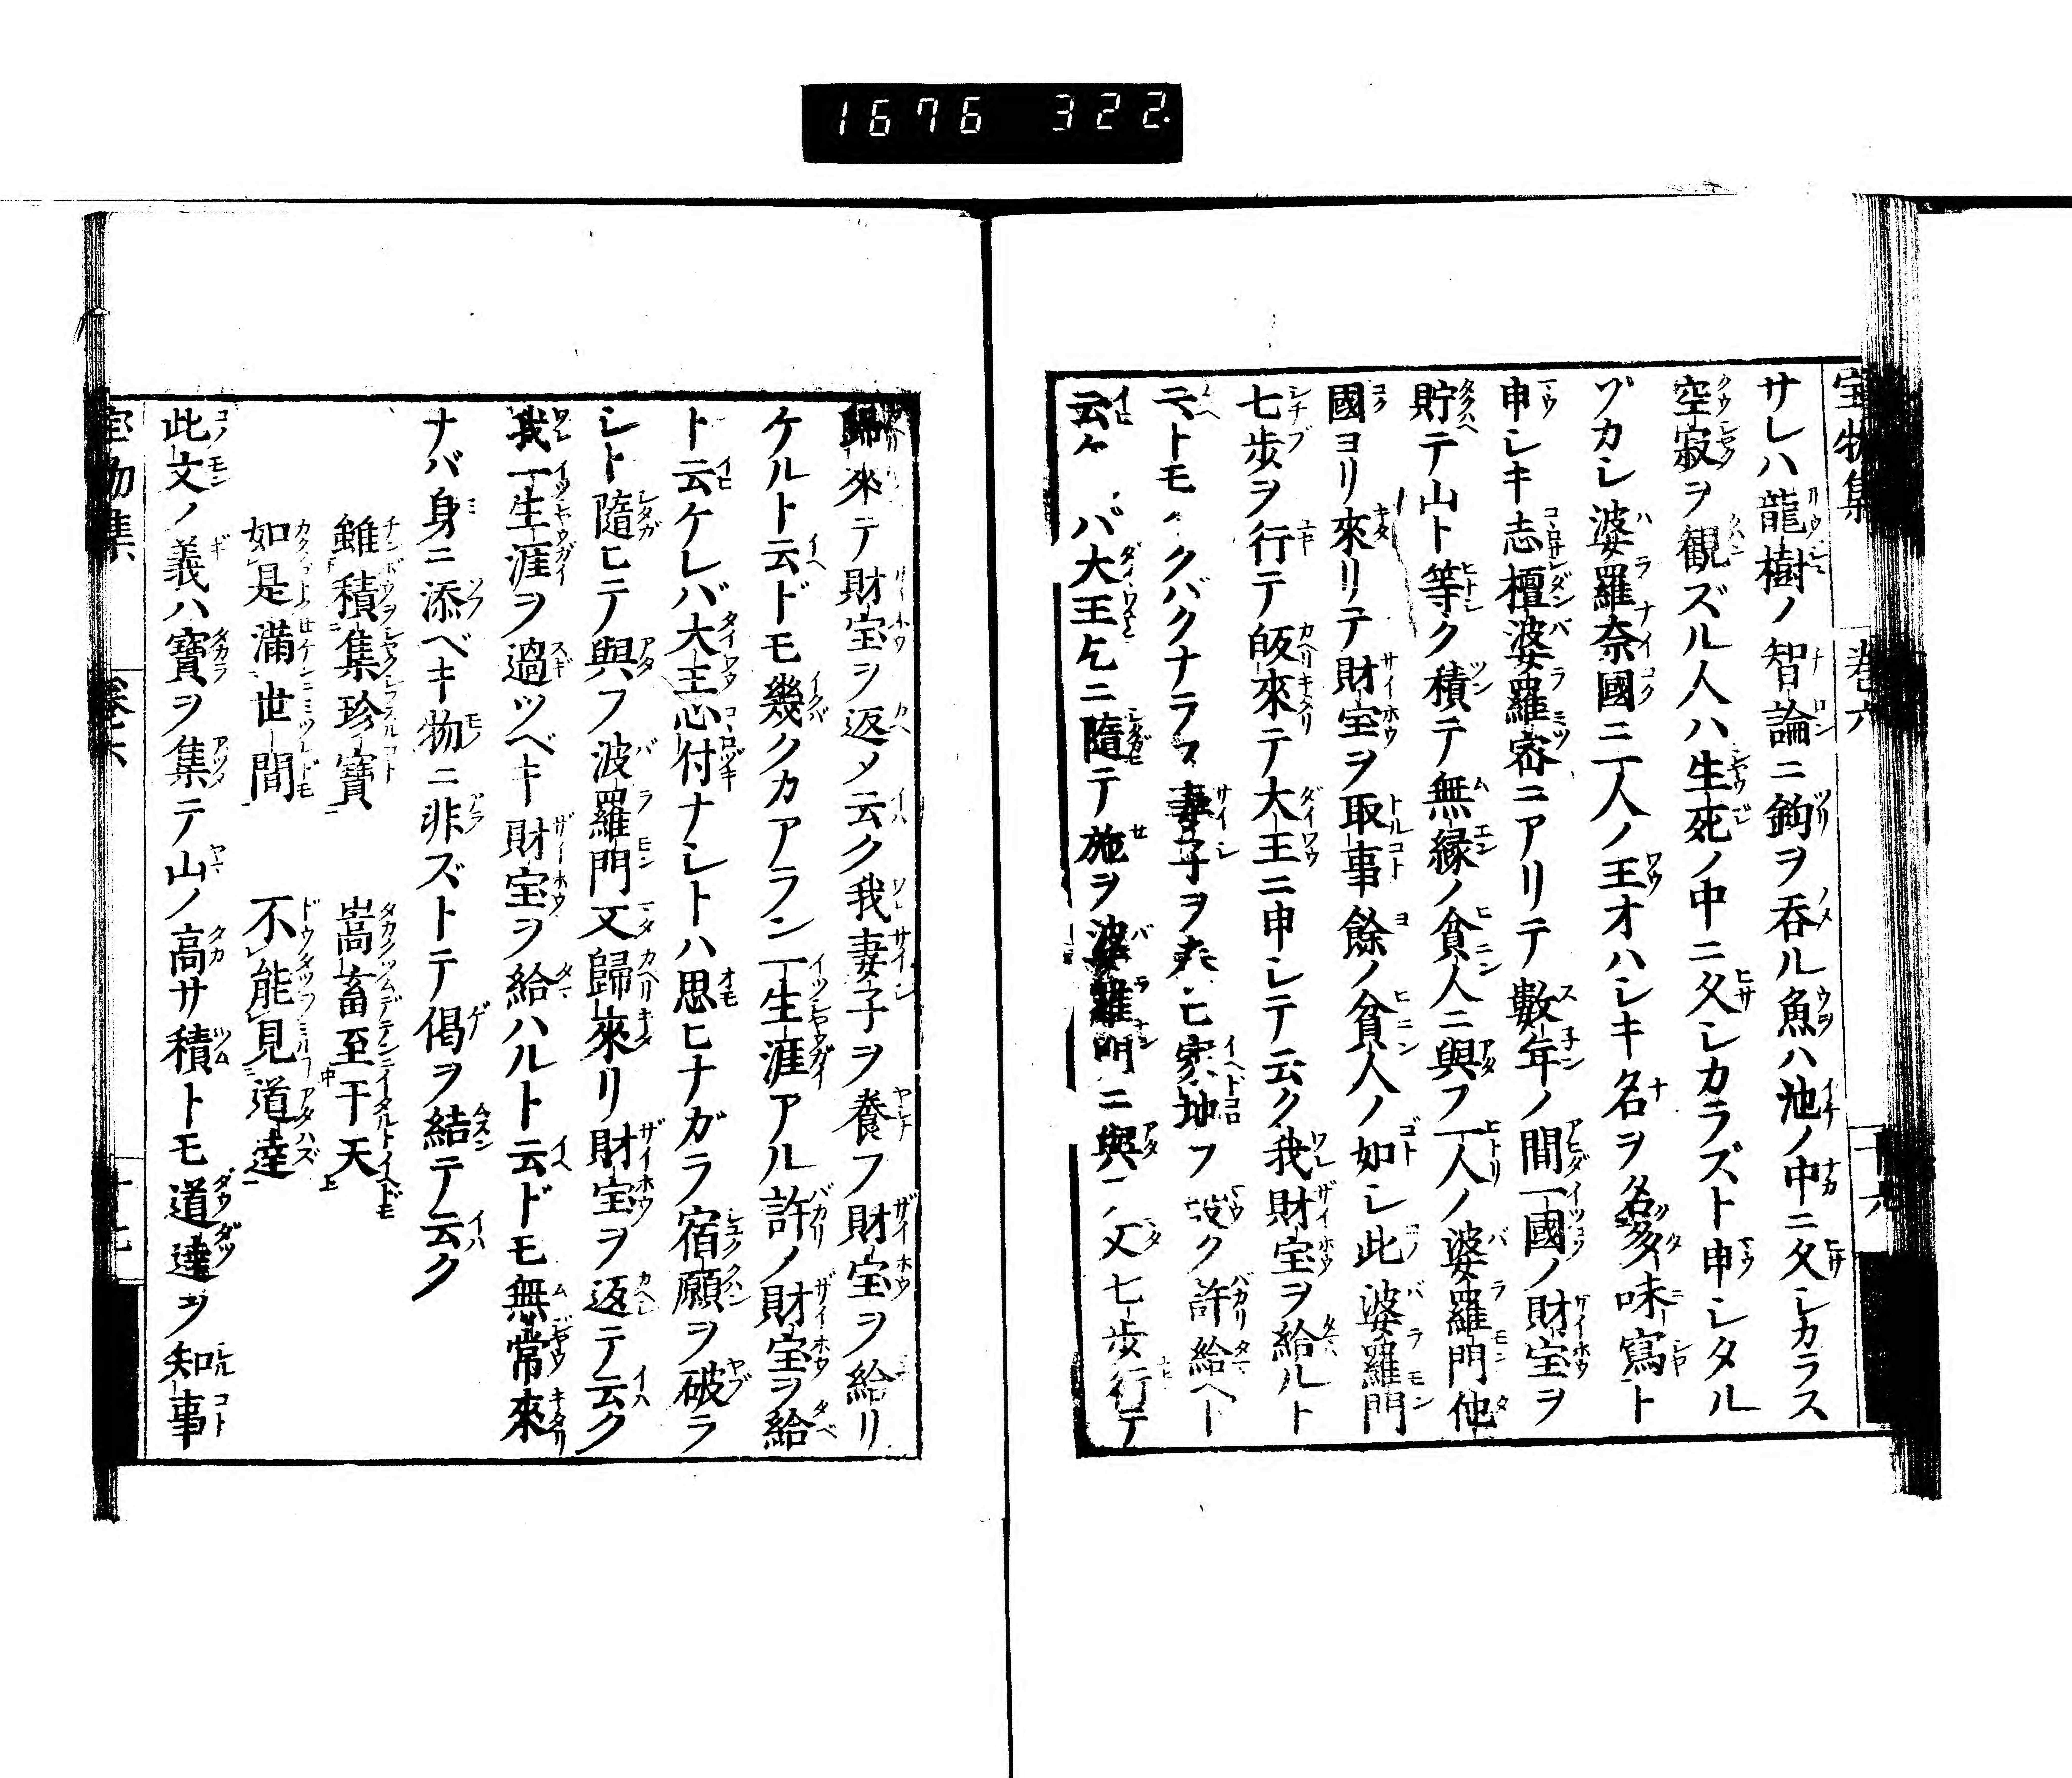 1676 322.
宝物集 巻六 十六
サレハ龍樹ノ智論ニ鉤ヲ呑ル魚ハ池ノ中ニ久シカラス
空寂ヲ観ズル人ハ生死ノ中ニ久シカラズト申シタル
ヅカシ婆羅奈國ニ一人ノ王オハシキ名ヲ名多味寫ト
申シキ志檀婆羅密ニアリテ數年ノ間一國ノ財宝ヲ
貯テ山ト等ク積テ無縁ノ貧人ニ與フ一人ノ婆羅門他
國ヨリ來リテ財宝ヲ取事餘ノ貧人ノ如シ此婆羅門
七歩ヲ行テ皈來テ大王ニ申シテ云ク我財宝ヲ給ルト
トモ クバクナラス妻子ヲ ヒ家 フ ク許給ヘト
云ケ バ大王乞ニ隨テ施ヲ婆羅門ニ與 又七歩行テ
歸來テ財宝ヲ返メ云ク我妻子ヲ養フ財宝ヲ給リ
ケルト云ドモ幾クカアラン一生涯アル許ノ財宝ヲ給
ト云ケレバ大王心付ナシトハ思ヒナガラ宿願ヲ破ラ
シト隨ヒテ與フ波羅門又歸來リ財宝ヲ返テ云ク
我一生涯ヲ過ツベキ財宝ヲ給ハルト云ドモ無常來
ナバ身ニ添ベキ物ニ非ズトテ偈ヲ結テ云ク
雖積集珍寶 嵩畜至干天
如是滿世間 不能見道達
此文ノ義ハ寶ヲ集テ山ノ高サ積トモ道達ヲ知事
宝物集 巻六 十七